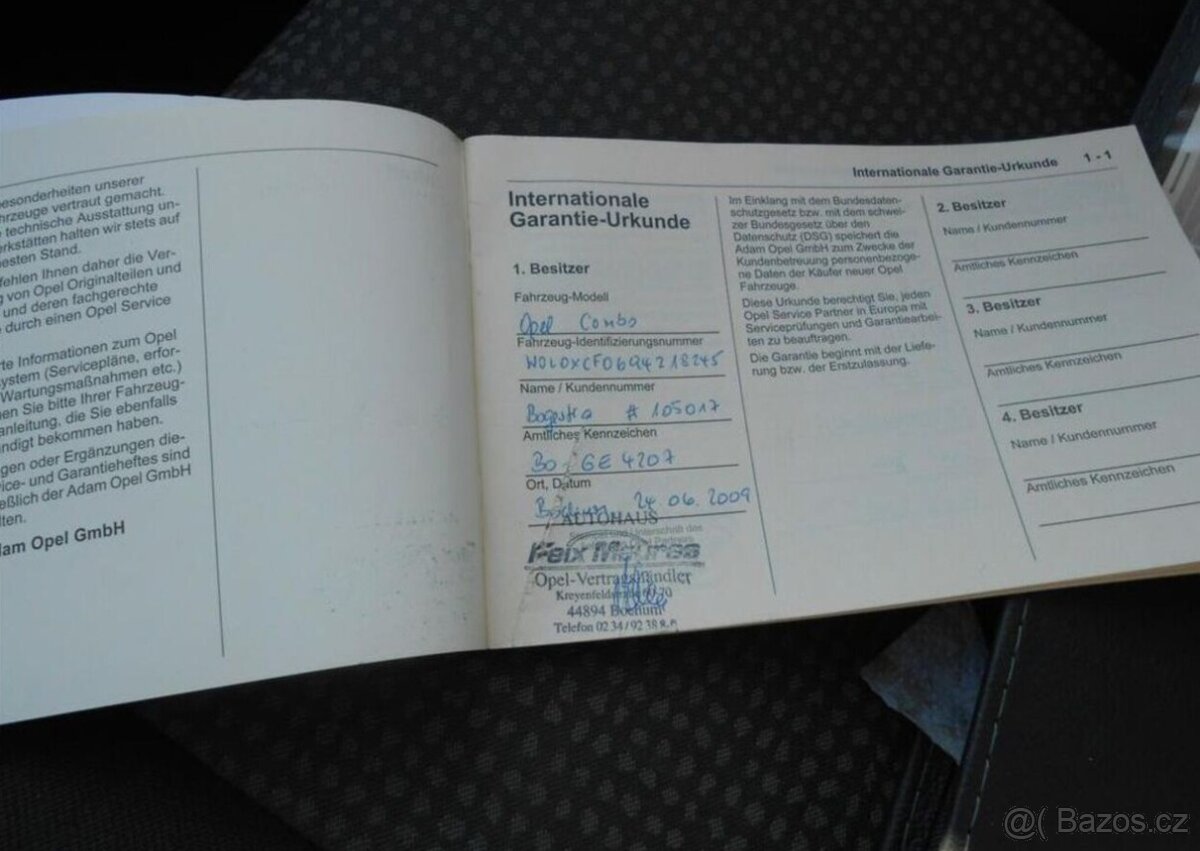 esonderheiten unserer
hrzeuge vertraut gemacht.
technische Ausstattung un-
erkstätten halten wir stets auf
esten Stand.
fehlen Ihnen daher die Ver-
von Opel Originalteilen und
und deren fachgerechte
durch einen Opel Service
rte Informationen zum Opel
ystem (Servicepläne, erfor-
Wartungsmaßnahmen etc.)
en Sie bitte Ihrer Fahrzeug-
anleitung, die Sie ebenfalls
ndigt bekommen haben.
gen oder Ergänzungen die-
ice- und Garantieheftes sind
eßlich der Adam Opel GmbH
lten.
dam Opel GmbH
Internationale Garantie-Urkunde 1 - 1
Internationale
Garantie-Urkunde
1. Besitzer
Fahrzeug-Modell
Opel Combo
Fahrzeug-Identifizierungsnummer
W0L0XCF0694218245
Name / Kundennummer
Bogestra # 105017
Amtliches Kennzeichen
Bo - GE 4207
Ort, Datum
Bochum 24.06.2009
AUTOHAUS
Opel-Vertragshändler
44894 Bochum
Telefon 02 34 / 92 38 8-0
Im Einklang mit dem Bundesdaten-
schutzgesetz bzw. mit dem schwei-
zer Bundesgesetz über den
Datenschutz (DSG) speichert die
Adam Opel GmbH zum Zwecke der
Kundenbetreuung personenbezoge-
ne Daten der Käufer neuer Opel
Fahrzeuge.
Diese Urkunde berechtigt Sie, jeden
Opel Service Partner in Europa mit
Serviceprüfungen und Garantiearbei-
ten zu beauftragen.
Die Garantie beginnt mit der Liefe-
rung bzw. der Erstzulassung.
2. Besitzer
Name / Kundennummer
Amtliches Kennzeichen
3. Besitzer
Name / Kundennummer
Amtliches Kennzeichen
4. Besitzer
Name / Kundennummer
Amtliches Kennzeichen
@( Bazos.cz